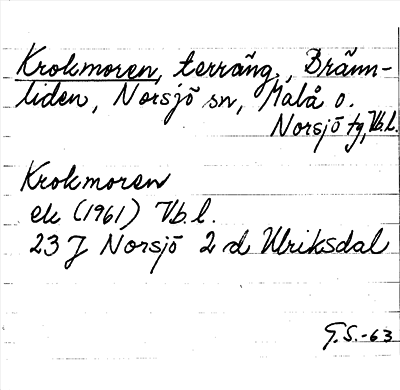 Krokmoren, terräng., Bränn-
liden, Norsjö sn, Malå o.
Norsjö tg, Vb.l.
Krokmoren
ek (1961) Vb.l.
23 J Norsjö 2 d Ulriksdal
G.S.-63